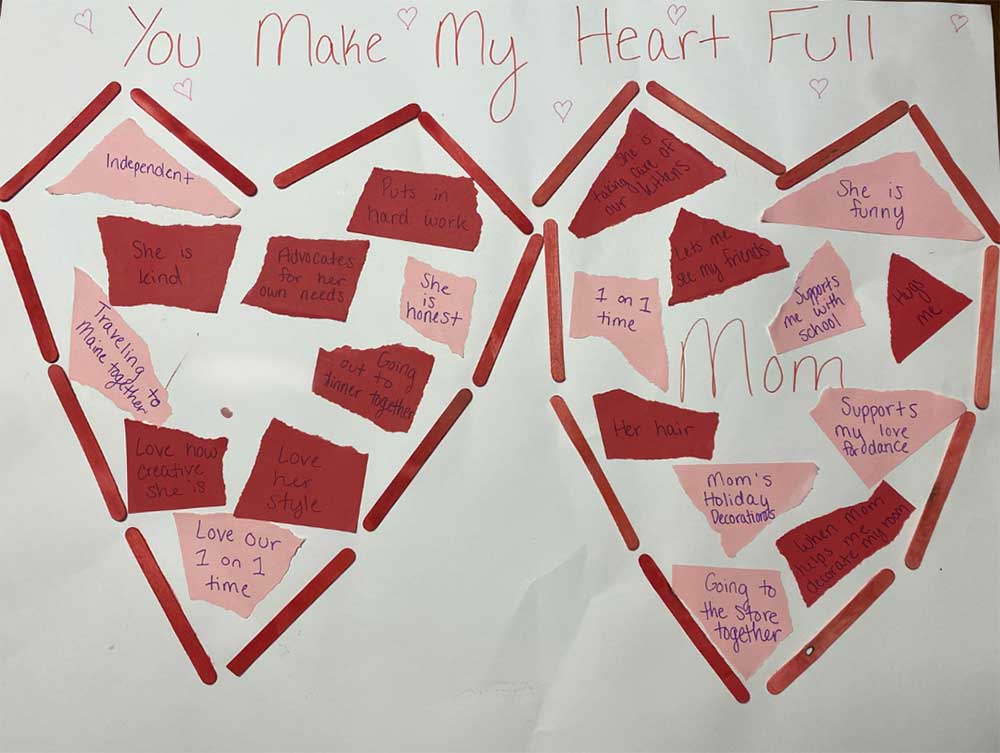 You Make My Heart Full
Independent
Puts in
hard work
She is
kind
Advocates
for her
own needs
She
is
honest
Traveling to
Maine together
Going
out to
dinner together
Love how
creative
she is
Love
her
style
Love our
1 on 1
time
She is
taking care of
our kittens
She is
funny
Lets me
see my friends
1 on 1
time
Supports
me with
school
Hugs
me
Mom
Her hair
Supports
my love
for dance
Mom's
Holiday
Decorations
When Mom
helps me
decorate my room
Going to
the store
together